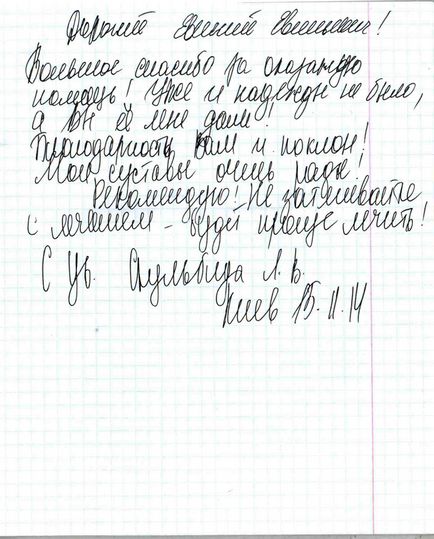 Дорогой Евгений Евгеньевич!
Большое спасибо за оказанную
помощь! Уже и надежды не было,
а Вы её мне дали!
Благодарность Вам и поклон!
Мои суставы очень рады!
Рекомендую! Не затягивайте
с лечением – будет проще лечить!
С Ув. Л. В.
Киев 15.11.14